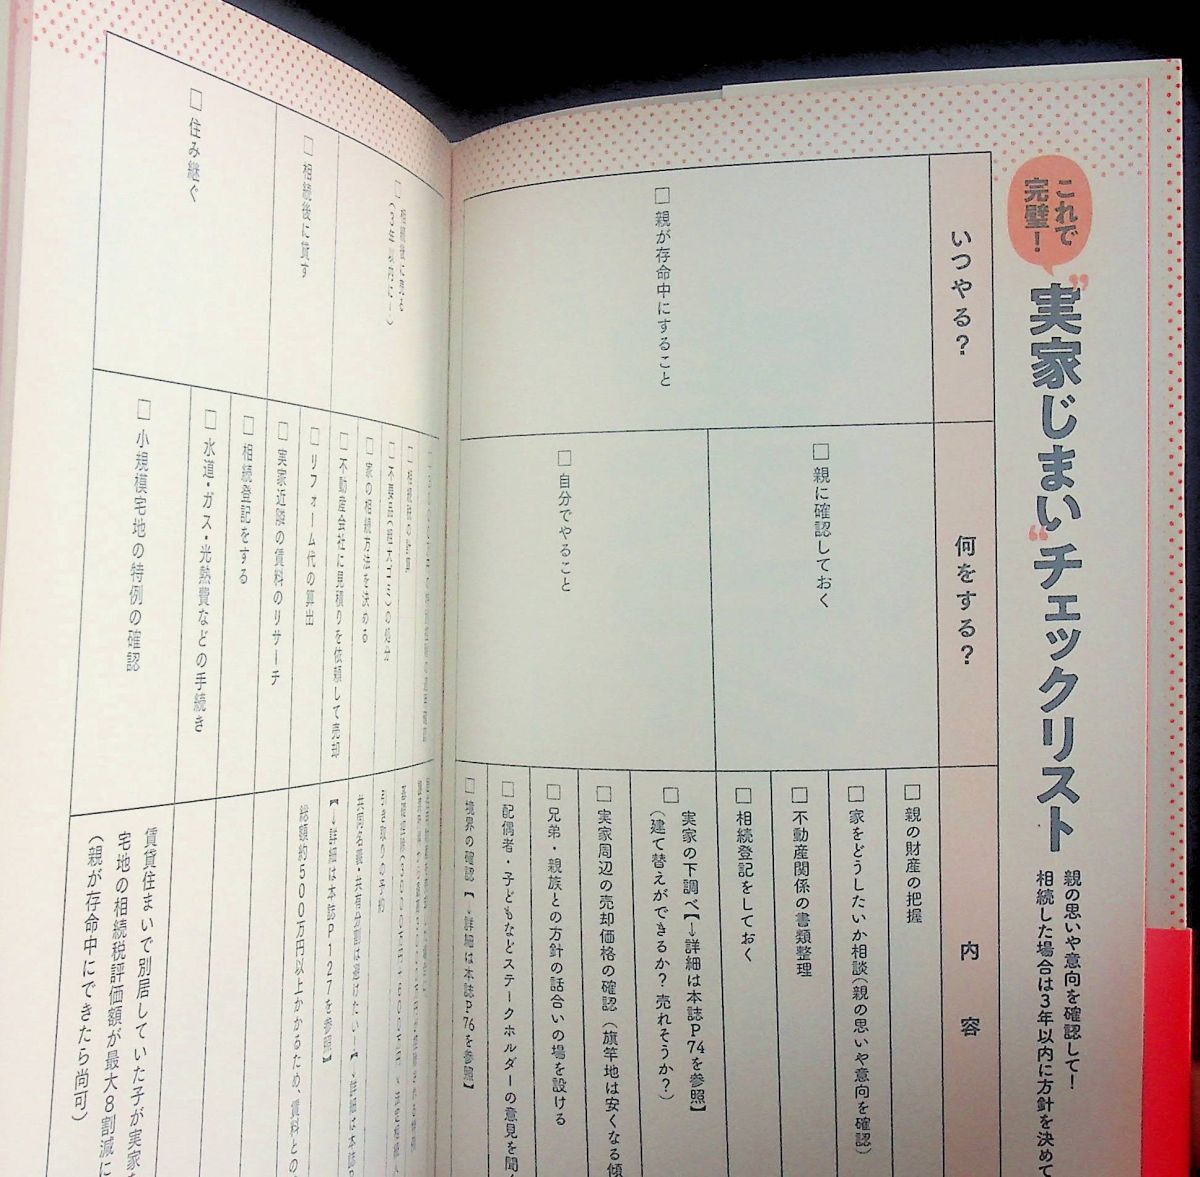 これで
完璧！
"実家じまい"チェックリスト
親の思いや意向を確認して！
相続した場合は3年以内に方針を決めて
いつやる？
何をする？
内容
□親が存命中にすること
□親に確認しておく
□親の財産の把握
□家をどうしたいか相談（親の思いや意向を確認）
□不動産関係の書類整理
□相続登記をしておく
□自分でやること
□実家の下調べ【→詳細は本誌P74を参照】
（建て替えができるか？ 売れそうか？）
□実家周辺の売却価格の確認（旗竿地は安くなる傾
□兄弟・親族との方針の話合いの場を設ける
□配偶者・子どもなどステークホルダーの意見を聞く
□境界の確認【→詳細は本誌P76を参照】
□相続後に売る
（3年以内に！）
□相続税の計算
□不要品（粗大ゴミ）の処分
引き取りの予約
□家の相続方法を決める
共同名義・共有分割は避けたい！【→詳細は本誌P
□不動産会社に見積りを依頼して売却
【→詳細は本誌P127を参照】
□相続後に貸す
□リフォーム代の算出
総額約500万円以上かかるため、賃料との
□実家近隣の賃料のリサーチ
□住み継ぐ
□相続登記をする
□水道・ガス・光熱費などの手続き
□小規模宅地の特例の確認
賃貸住まいで別居していた子が実家を
宅地の相続税評価額が最大8割減に
（親が存命中にできたら尚可）